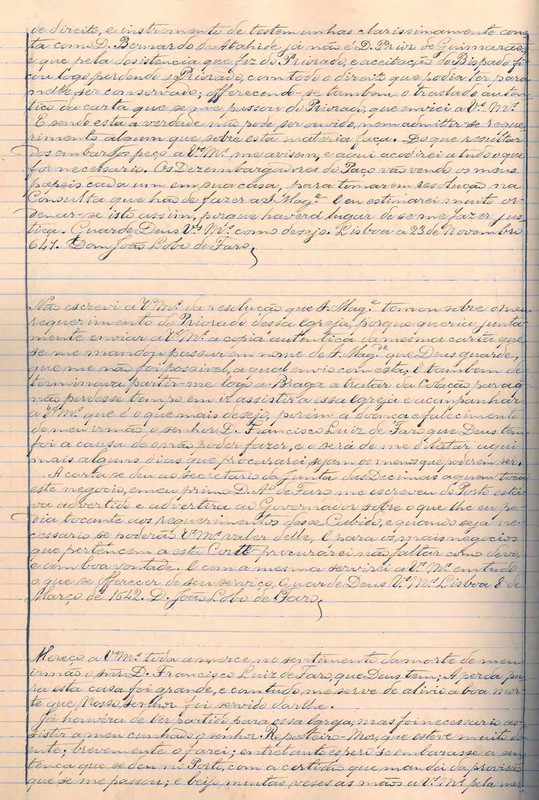 de direito, e instrumento de testemunhas clarissimamente cons
ta como D. Bernardo de Atahide já não é D. Prior de Guimarães,
e que pela desistencia que fez do Priorado, e aceitação do Bispado fi
cou logo perdendo o Priorado, com todo o direito que podia ter para
nelle ser conservado; offerecendo-se tambem o traslado authen
tico da carta que se me passou do Priorado, que enviei a V.ª M.ᶜ
E sendo esta a verdade não pode ser ouvido, nem admittir-se reque
rimento algum que sobre esta materia faça. Do que resultar
dos embargos peço a V.ª M.ᶜ me avisem, e aqui acodirei a tudo o que
for necessario. Os Dezembargadores do Paço vão vendo os meus
papeis cada um em sua casa, para tomarem resolução na
Consulta que hão de fazer a S. Mag.ᵉ E eu estimarei muito or
denar-se isto assim, porque haverá lugar de se me fazer jus
tiça. Guarde Deus V.ª M.ᶜ como desejo. Lisboa a 23 de Novembro
641. Dom João Lobo de Faro,
Não escrevi a V.ª M.ᶜ da resolução que S. Mag.ᵉ tomou sobre o meu
requerimento do Priorado dessa Igreja, porque queria junta
mente enviar a V.ª M.ᶜ a copia autentica da mesma carta que
se me mandou passar em nome de S. Mag.ᵉ que Deus guarde,
que me não foi possivel, a qual envio com esta. E tambem de
terminava partir-me logo a Braga a tratar da Colação para
não perder tempo em ir assistir a essa Igreja e acompanhar
a V.ª M.ᶜ que é o que mais desejo, porém a doença e falecimento
de meu irmão o senhor D. Francisco Luiz de Faro que Deus tem
foi a causa de o não poder fazer, e o será de me dilatar aqui
mais alguns dias que procurarei sejam os menos que poderem ser.
A carta se deu ao secretario da junta das Decimas a quem toca
este negocio, e meu primo D. A.º de Faro me escreveu do Porto esta
va advertido e advertira ao Governador sobre o que lhe eu pe
dia tocante aos requerimentos desse Cabido, e quando seja ne
cessario se poderão V.ª M.ᶜ valer delle. E para os mais negocios
que pertencem a esta Corte procurarei não faltar como devo,
e com boa vontade. E com a mesma servirei a V.ª M.ᶜ em tudo
o que se offerecer de seu serviço. Guarde Deus V.ª M.ᶜ Lisboa 8 de
Março de 1642. D. João Lobo de Faro,
Mereço a V.ª M.ᶜ toda a merce, no sentimento da morte de meu
irmão o snr. D. Francisco Luiz de Faro, que Deus tem; A perda pa
ra esta casa foi grande, e com tudo me serve de alivio a boa mor
te que Nosso Senhor foi servido dar-lhe.
Já houvera de ter partido para essa Igreja, mas foi necessario as
sistir a meu cunhado o senhor Reposteiro-Mor, que esteve muito do
ente; brevemente o farei; entretanto espero se embarasse a sen
tença que se deu no Porto, com a certidão que mandei da provisão
que se me passou; e beijo muitas vezes as mãos a V.ª M.ᶜ pela mer